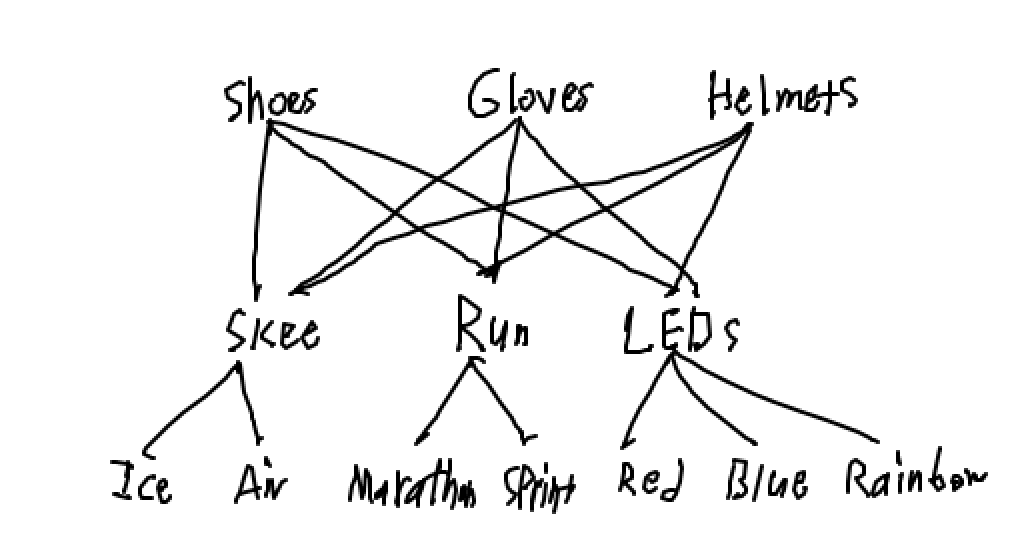 Shoes Gloves Helmets
Skee Run LEDs
Ice Air Marathon Sprint Red Blue Rainbow